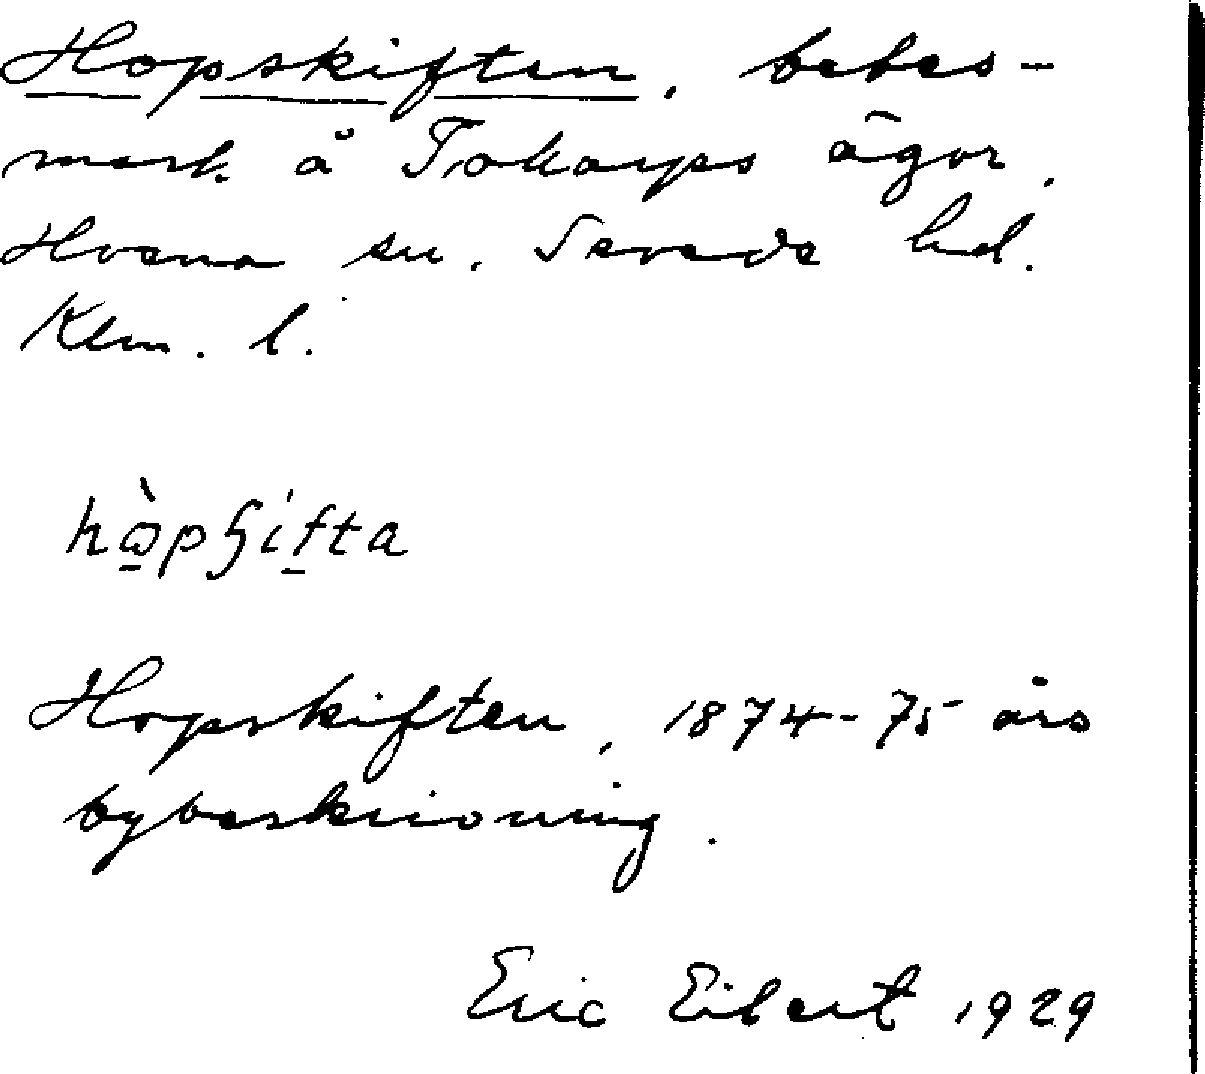 Hopskiften, betes-
mark å Tokarps ägor,
Hvena sn. Sevede hd.
Klm. l.
Hopskiften, 1874-75 års
bybeskrivning.
Eric Eilert 1929